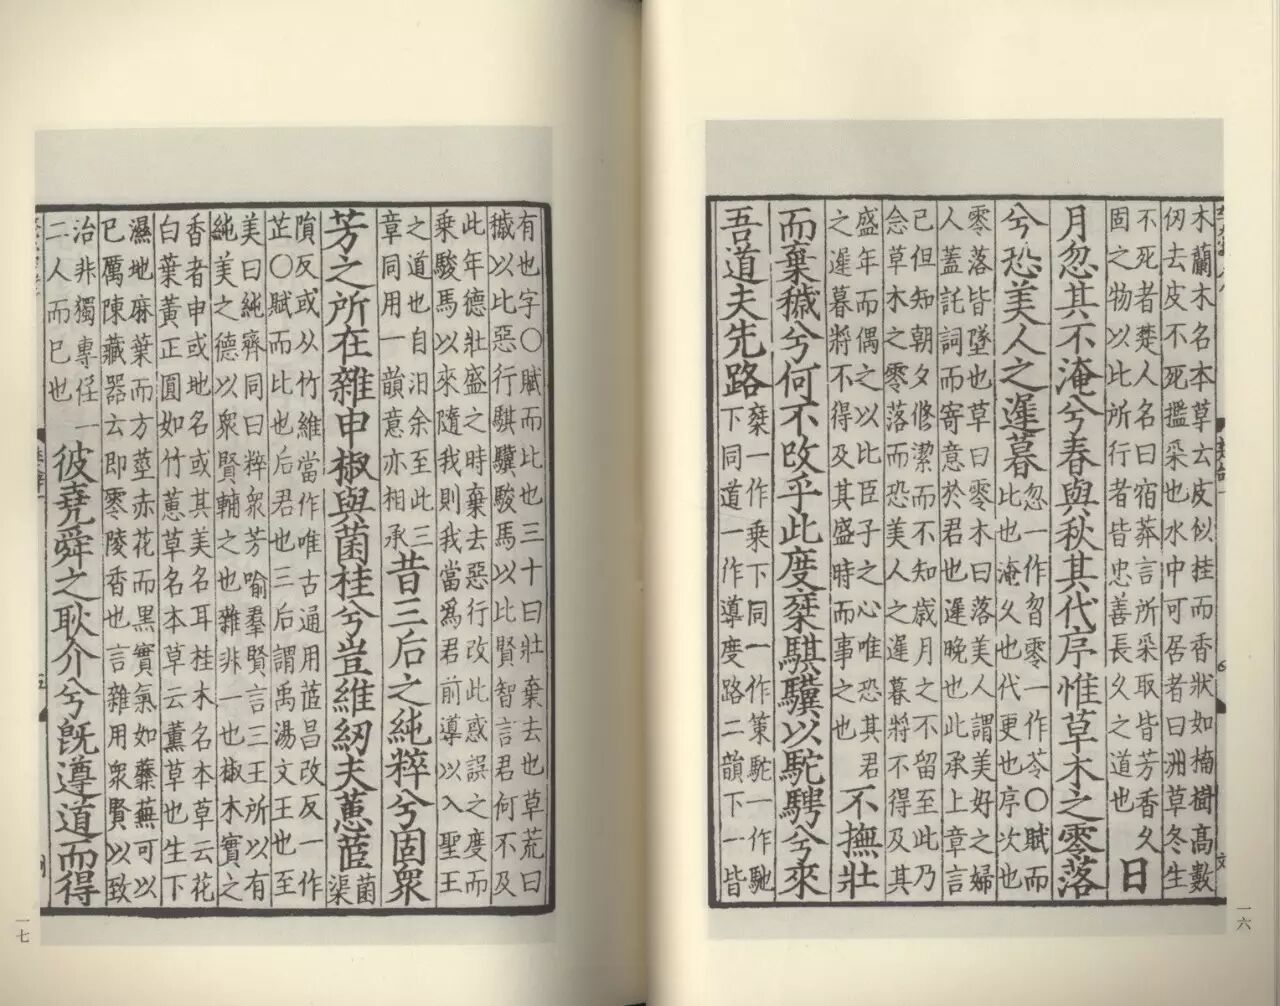 木蘭木名本草云皮似桂而香狀如楠樹高數
仞去皮不死擥采也水中可居者曰洲草冬生
不死者楚人名曰宿莽言所采取皆芳香久
固之物以比所行者皆忠善長久之道也
日
月忽其不淹兮春與秋其代序惟草木之零落
兮恐美人之遲暮
忽一作曶零一作苓〇賦而
比也淹久也代更也序次也
零落皆墜也草曰零木曰落美人謂美好之婦
人蓋託詞而寄意於君也遲晚也此承上章言
己但知朝夕修潔而不知歲月之不留至此乃
念草木之零落而恐美人之遲暮將不得及其
盛年而偶之以比臣子之心唯恐其君
之遲暮將不得及其盛時而事之也
不撫壯
而棄穢兮何不改乎此度椉騏驥以駝騁兮來
吾道夫先路
椉一作乗下同一作策駝一作馳
下同道一作導度路二韻下一皆
一六
有也字〇賦而比也三十曰壯棄去也草荒曰
穢以比惡行騏驥駿馬以比賢智言君何不及
此年德壯盛之時棄去惡行改此惑誤之度而
乗駿馬以來隨我則我當爲君前導以入聖王
之道也自汨余至此三
章同用一韻意亦相承
昔三后之純粹兮固衆
芳之所在雜申椒與菌桂兮豈維紉夫蕙茝
菌
渠
隕反或从竹維當作唯古通用茝昌改反一作
芷〇賦而比也后君也三后謂禹湯文王也至
美曰純齊同曰粹衆芳喻羣賢言三王所以有
純美之德以衆賢輔之也雜非一也椒木實之
香者申或地名或其美名耳桂木名本草云花
白葉黃正圓如竹蕙草名本草云薰草也生下
濕地麻葉而方莖赤花而黑實氣如蘼蕪可以
已厲陳藏器云即零陵香也言雜用衆賢以致
治非獨專任一
二人而已也
彼堯舜之耿介兮旣遵道而得
一七